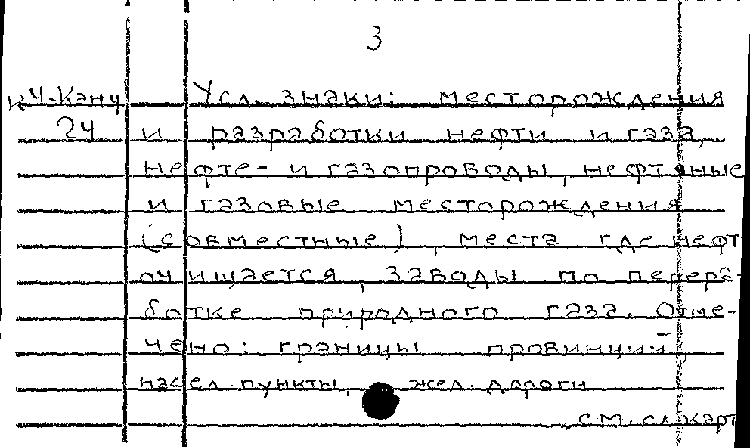 3
Усл. знаки: месторождения
24 и разработки нефти и газа,
нефте- и газопроводы, нефтяные
и газовые месторождения
(совместные), места где нефт
очищается, заводы по перера-
ботке природного газа. Отме-
чено: границы провинций,
насел. пункты, жел. дороги
см. сл. карт